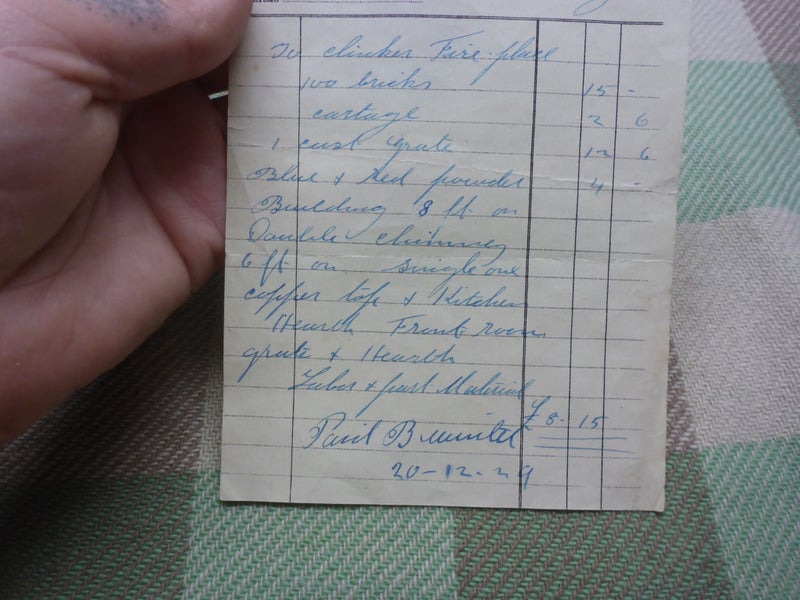 To clinker Fire place
100 bricks 15 -
cartage 2 6
1 cast grate 12 6
Blue & Red powder 4 -
Building 8 ft on
Double chimney
6 ft on single one
copper top & Kitchen
Hearth Front room
grate & Hearth
Labor & part Material
£ 8 - 15
Paid
20-12-29